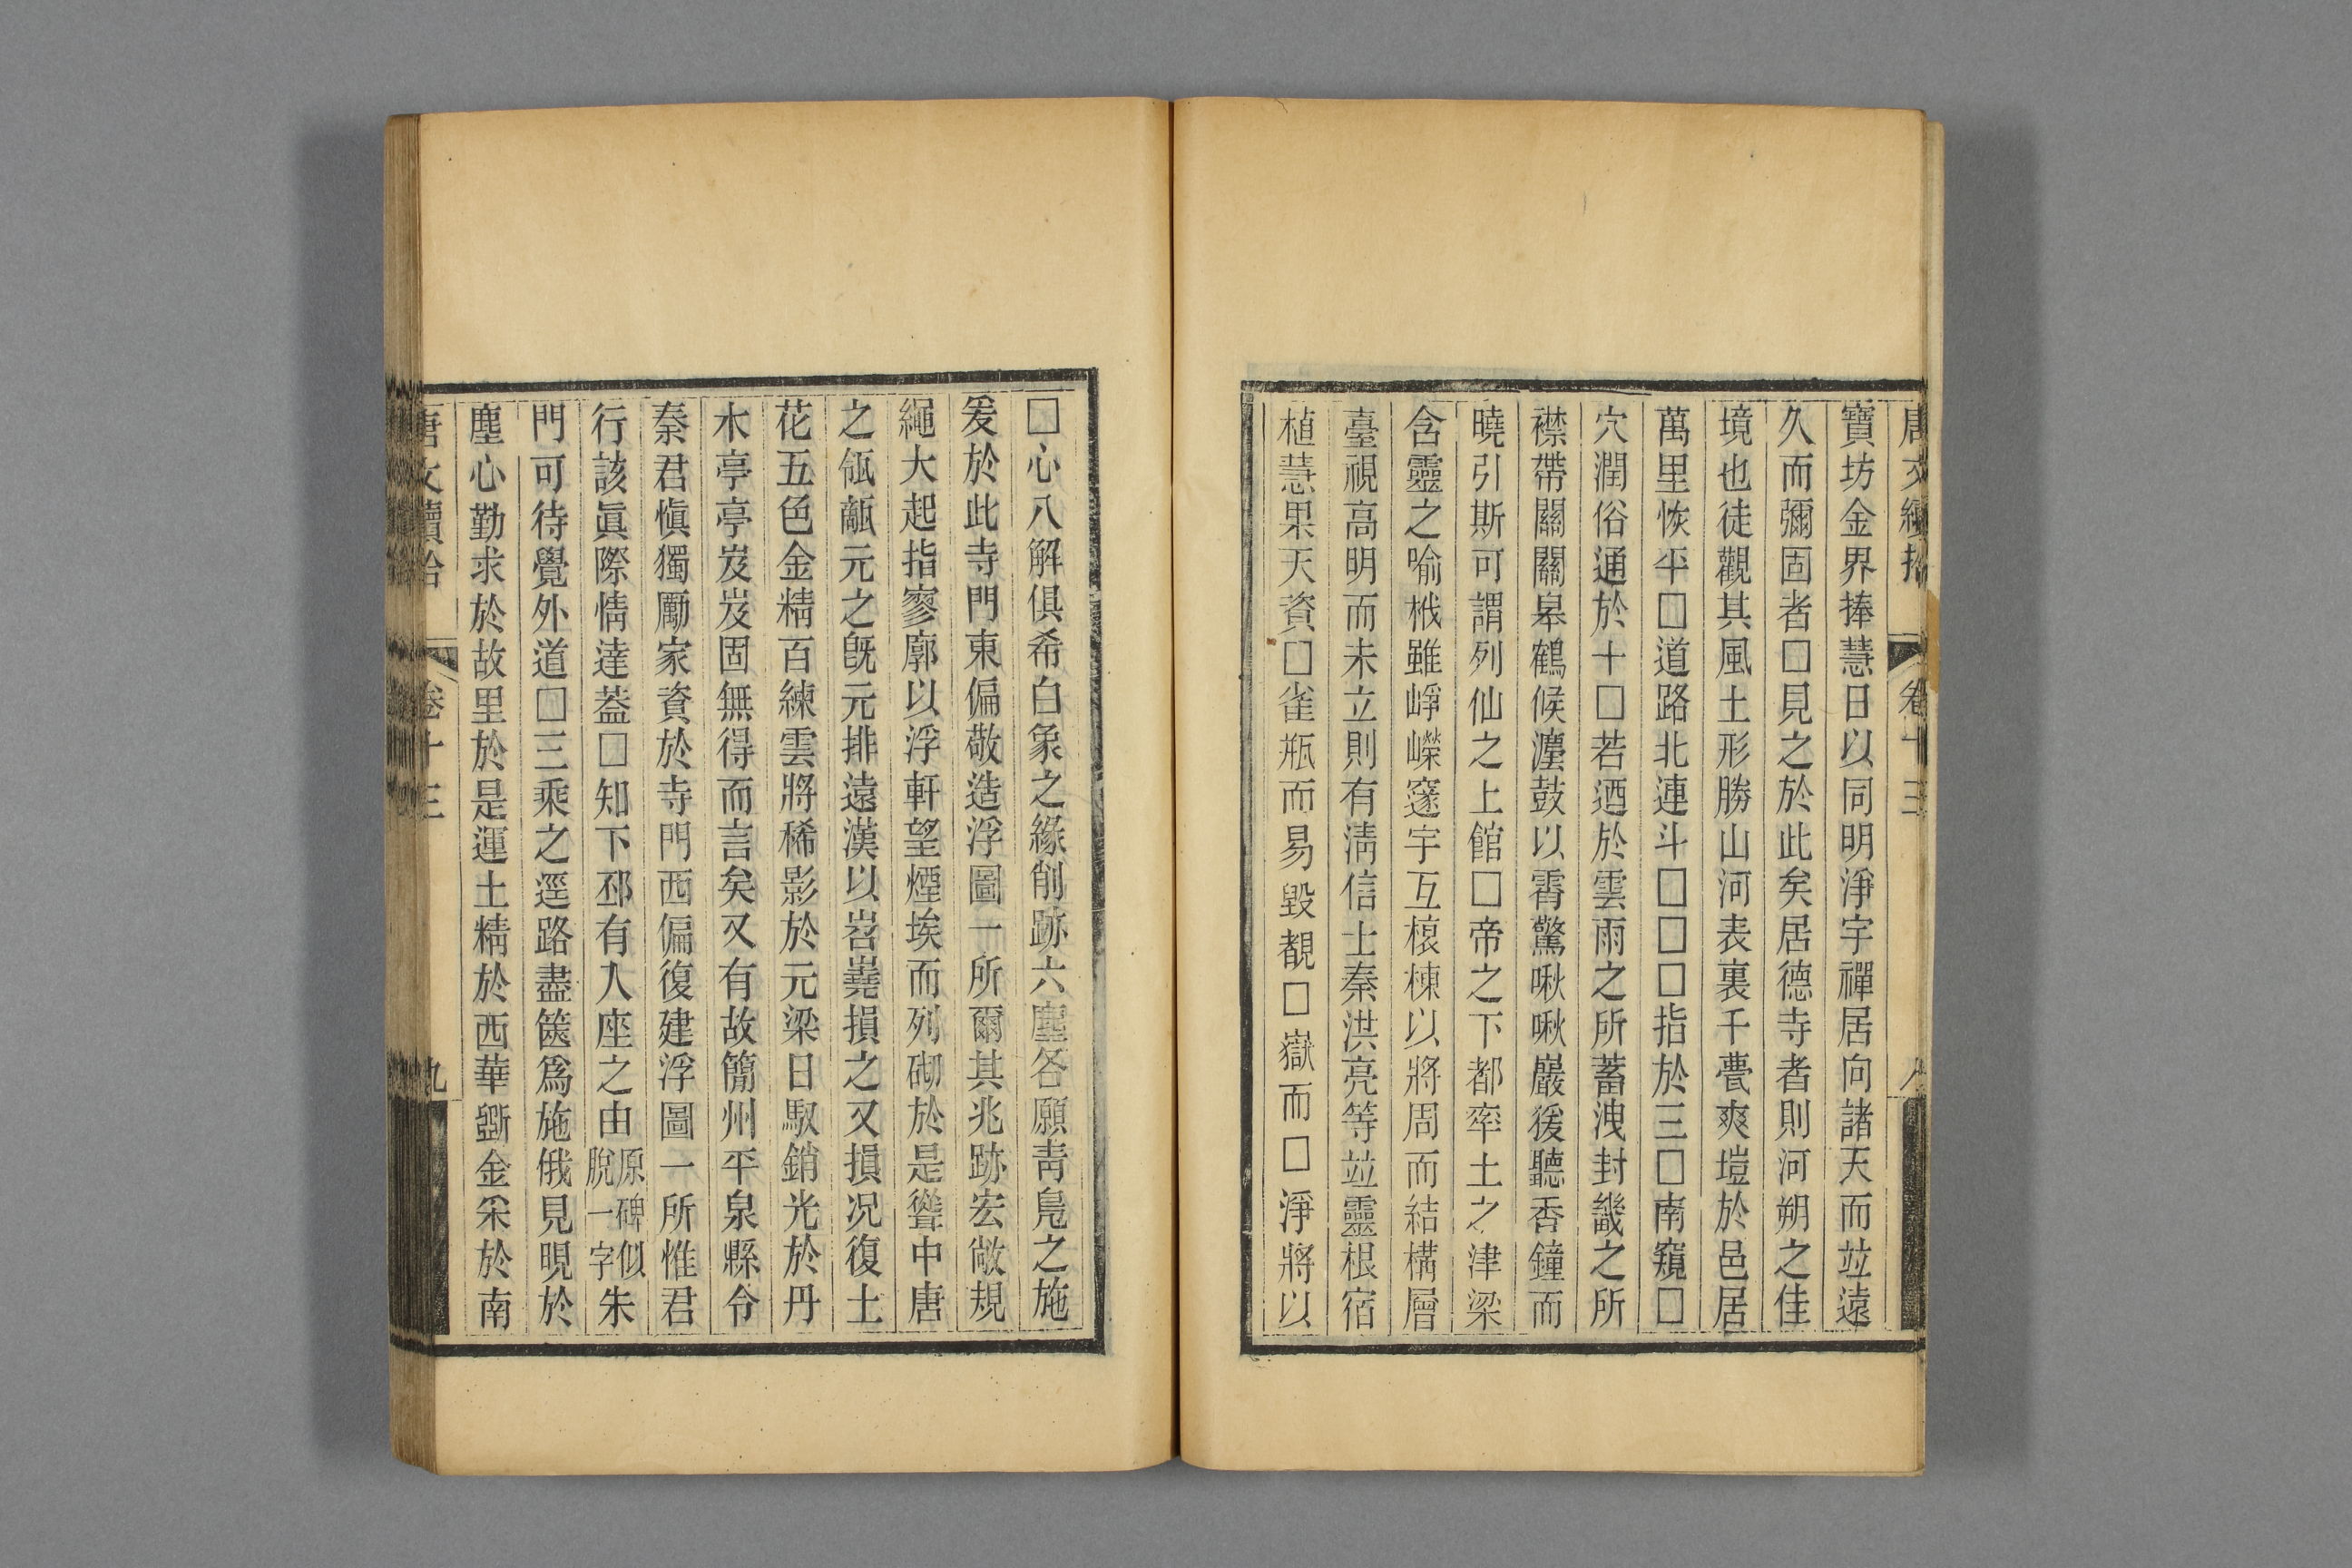 唐文續拾 卷十三 八
寶坊金界捧慧日以同明淨宇禪居向諸天而竝遠
久而彌固者□見之於此矣居德寺者則河朔之佳
境也徒觀其風土形勝山河表裏千甍爽塏於邑居
萬里恢平□道路北連斗□□□指於三□南窺□
穴潤俗通於十□若迺於雲雨之所蓄洩封畿之所
襟帶關關皋鶴候瀍鼓以霄驚啾啾巖猨聽香鐘而
曉引斯可謂列仙之上館□帝之下都率土之津梁
含靈之喻栰雖崢嶸窆宇互榱棟以將周而結構層
臺視高明而未立則有淸信士秦洪亮等竝靈根宿
植慧果天資□雀瓶而易毀覩□嶽而□淨將以
□心八解俱希白象之緣削跡六塵各願靑鳧之施
爰於此寺門東偏敬造浮圖一所爾其兆跡宏敞規
繩大起指寥廓以浮軒望煙埃而列砌於是聳中唐
之瓴甋元之旣元排遠漢以岧嶤損之又損況復土
花五色金精百練雲將稀影於元梁日馭銷光於丹
木亭亭岌岌固無得而言矣又有故簡州平泉縣令
秦君愼獨勵家資於寺門西偏復建浮圖一所惟君
行該眞際情達蓋□知下邳有人座之由原碑似脫一字朱
門可待覺外道□三乘之逕路盡篋爲施俄見晛於
塵心勤求於故里於是運土精於西華斵金采於南
唐文續拾 卷十三 九